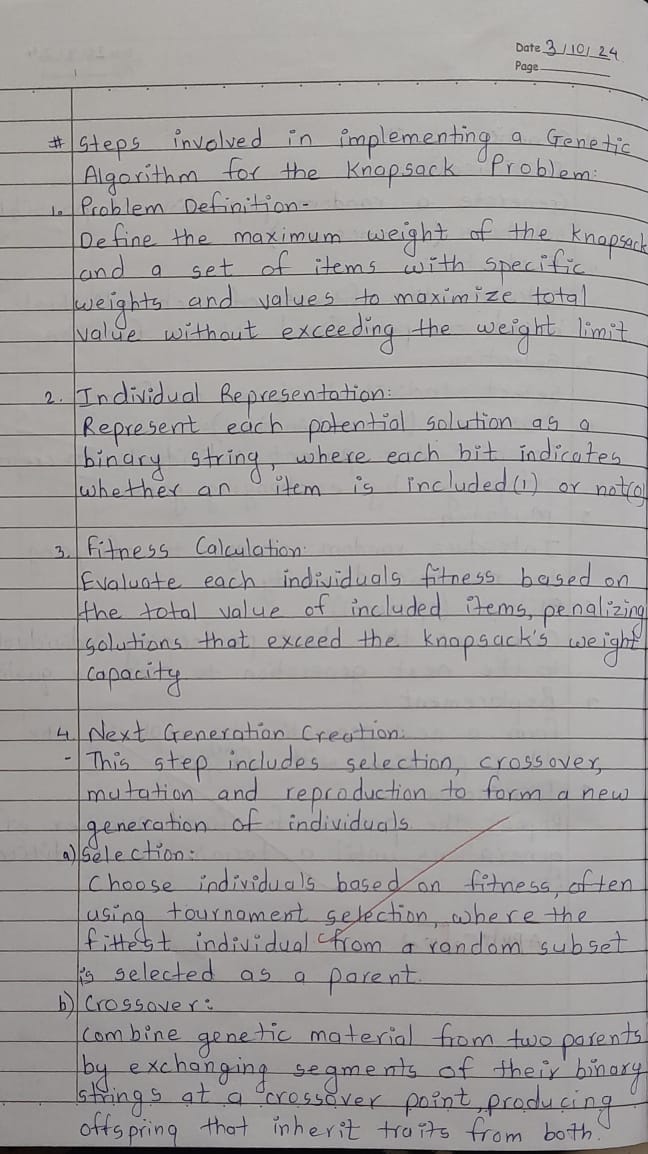 Date 3/10/24
Page
# Steps involved in implementing a Genetic
Algorithm for the Knapsack Problem:
1. Problem Definition-
Define the maximum weight of the knapsack
and a set of items with specific
weights and values to maximize total
value without exceeding the weight limit
2. Individual Representation:
Represent each potential solution as a
binary string, where each bit indicates
whether an item is included(1) or not(0)
3. Fitness Calculation:
Evaluate each individuals fitness based on
the total value of included items, penalizing
solutions that exceed the knapsack's weight
capacity
4. Next Generation Creation:
- This step includes selection, crossover,
mutation and reproduction to form a new
generation of individuals.
a) Selection:
Choose individuals based on fitness, often
using tournament selection, where the
fittest individual from a random subset
is selected as a parent.
b) Crossover:
Combine genetic material from two parents
by exchanging segments of their binary
strings at a crossover point, producing
offspring that inherit traits from both.